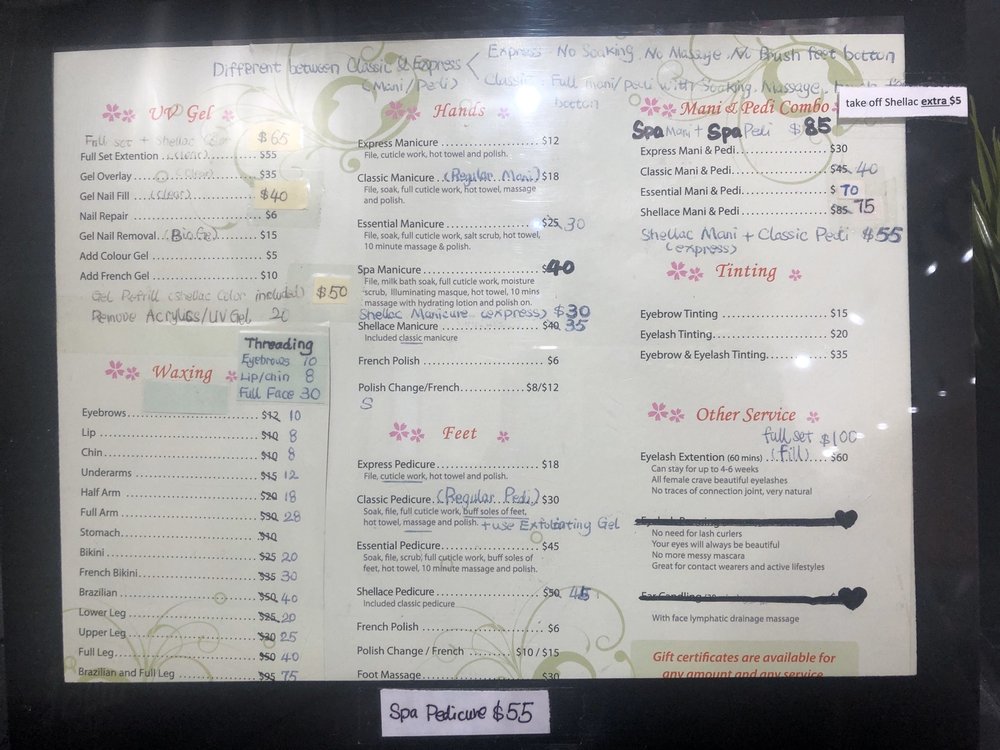 Different between Classic & Express (Mani/Pedi)
Express - No Soaking. No Massage. No Brush feet bottom
Classic - Full mani/pedi with Soaking. Massage.
bottom
take off Shellac extra $5
UV Gel
Full set + Shellac Color $65
Full Set Extention (Clear) $55
Gel Overlay (Clear) $35
Gel Nail Fill (Clear) $40
Nail Repair $6
Gel Nail Removal (Bio Gel) $15
Add Colour Gel $5
Add French Gel $10
Gel Refrill (shellac Color included) $50
Remove Acrylics/UV Gel 20
Threading
Eyebrows 10
Lip/chin 8
Full Face 30
Waxing
Eyebrows $12 10
Lip $10 8
Chin $10 8
Underarms $15 12
Half Arm $20 18
Full Arm $30 28
Stomach $10
Bikini $25 20
French Bikini $35 30
Brazilian $50 40
Lower Leg $25 20
Upper Leg $30 25
Full Leg $50 40
Brazilian and Full Leg $95 75
Hands
Express Manicure $12
File, cuticle work, hot towel and polish.
Classic Manicure (Regular Mani) $18
File, soak, full cuticle work, hot towel, massage
and polish.
Essential Manicure $25 30
File, soak, full cuticle work, salt scrub, hot towel,
10 minute massage & polish.
Spa Manicure $40
File, milk bath soak, full cuticle work, moisture
scrub, Illuminating masque, hot towel, 10 mins
massage with hydrating lotion and polish on.
Shellac Manicure (express) $30
Shellace Manicure $40 35
Included classic manicure
French Polish $6
Polish Change/French $8/$12
S
Feet
Express Pedicure $18
File, cuticle work, hot towel and polish.
Classic Pedicure (Regular Pedi) $30
Soak, file, full cuticle work, buff soles of feet,
hot towel, massage and polish. + use Exfoliating Gel
Essential Pedicure $45
Soak, file, scrub, full cuticle work, buff soles of
feet, hot towel, 10 minute massage and polish.
Shellace Pedicure $50 45
Included classic pedicure
French Polish $6
Polish Change / French $10 / $15
Foot Massage $30
Mani & Pedi Combo
Spa Mani + Spa Pedi $85
Express Mani & Pedi $30
Classic Mani & Pedi $45 40
Essential Mani & Pedi $70
Shellace Mani & Pedi $85 75
Shellac Mani + Classic Pedi $55
(express)
Tinting
Eyebrow Tinting $15
Eyelash Tinting $20
Eyebrow & Eyelash Tinting $35
Other Service
full set $100
Eyelash Extention (60 mins) (fill) $60
Can stay for up to 4-6 weeks
All female crave beautiful eyelashes
No traces of connection joint, very natural
No need for lash curlers
Your eyes will always be beautiful
No more messy mascara
Great for contact wearers and active lifestyles
With face lymphatic drainage massage
Gift certificates are available for
any amount and any service
Spa Pedicure $55